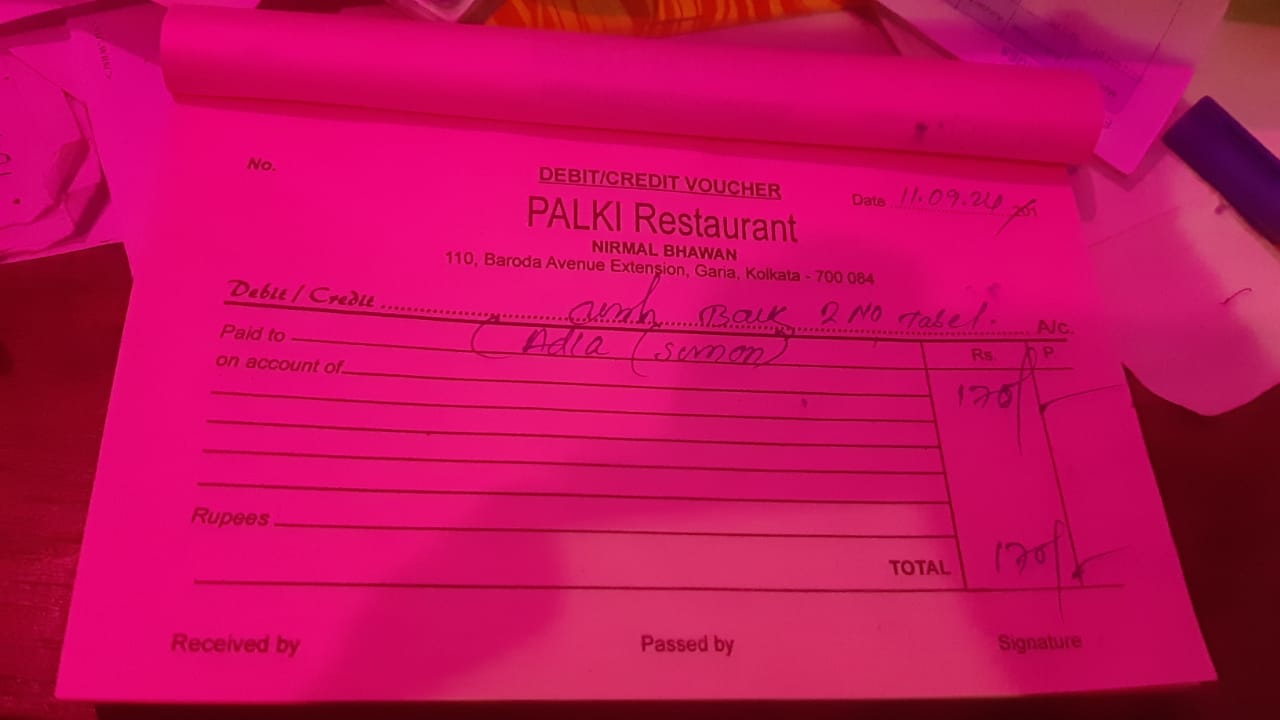 No.
DEBIT/CREDIT VOUCHER
Date 11.09.24 201
PALKI Restaurant
NIRMAL BHAWAN
110, Baroda Avenue Extension, Garia, Kolkata - 700 084
Debit / Credit cash Back 2 No Tabel. A/c.
Paid to (Adla (sumon)
Rs. P.
on account of
170/-
Rupees
TOTAL 170/-
Received by Passed by Signature